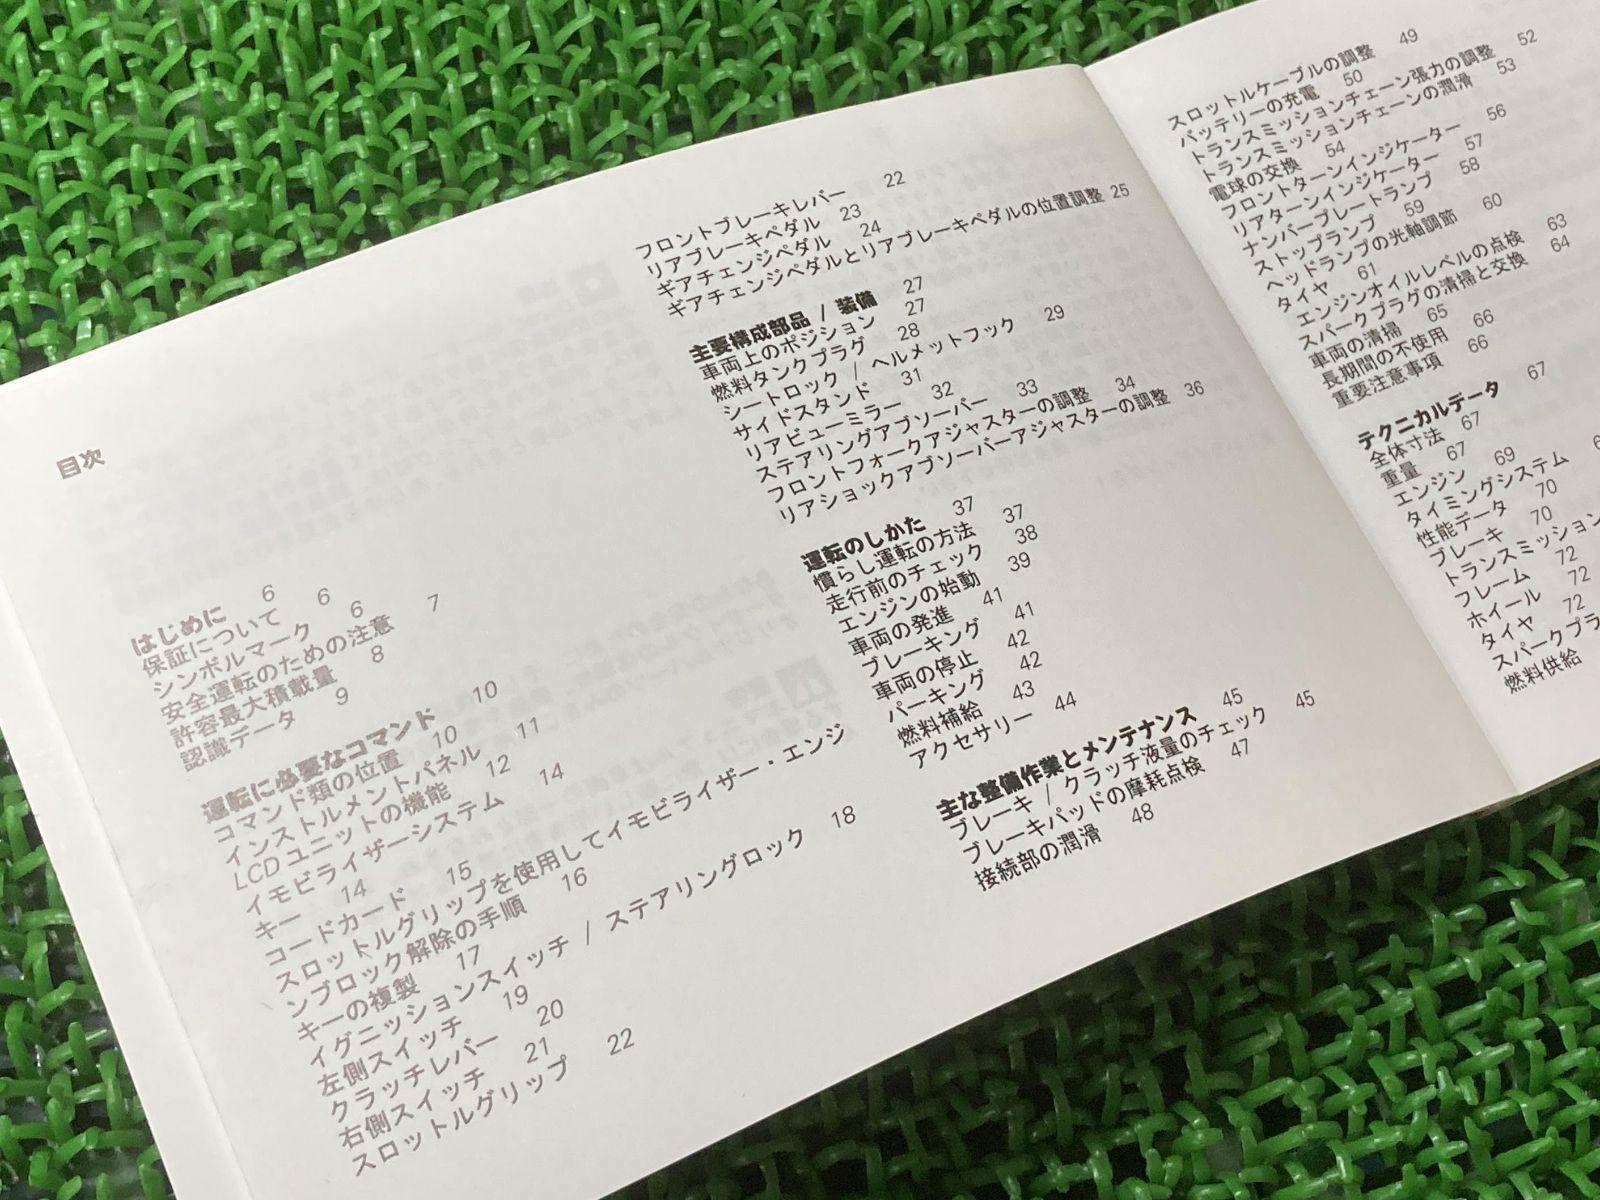 目次
はじめに 6
保証について 6
シンボルマーク 6
安全運転のための注意 7
許容最大積載量 8
認識データ 9
運転に必要なコマンド 10
コマンド類の位置 10
インストルメントパネル 11
LCDユニットの機能 12
イモビライザーシステム 14
キー 14
コードカード 15
スロットルグリップを使用してイモビライザー・エンジ
ンブロック解除の手順 16
キーの複製 17
イグニッションスイッチ / ステアリングロック 18
左側スイッチ 19
クラッチレバー 20
右側スイッチ 21
スロットルグリップ 22
フロントブレーキレバー 22
リアブレーキペダル 23
ギアチェンジペダル 24
ギアチェンジペダルとリアブレーキペダルの位置調整 25
主要構成部品 / 装備 27
車両上のポジション 27
燃料タンクプラグ 28
シートロック / ヘルメットフック 29
サイドスタンド 31
リアビューミラー 32
ステアリングアブソーバー 33
フロントフォークアジャスターの調整 34
リアショックアブソーバーアジャスターの調整 36
運転のしかた 37
慣らし運転の方法 37
走行前のチェック 38
エンジンの始動 39
車両の発進 41
ブレーキング 41
車両の停止 42
パーキング 42
燃料補給 43
アクセサリー 44
主な整備作業とメンテナンス 45
ブレーキ / クラッチ液量のチェック 45
ブレーキパッドの摩耗点検 47
接続部の潤滑 48
スロットルケーブルの調整 49
バッテリーの充電 50
トランスミッションチェーン張力の調整 52
トランスミッションチェーンの潤滑 53
電球の交換 54
フロントターンインジケーター 56
リアターンインジケーター 57
ナンバープレートランプ 58
ストップランプ 59
ヘッドランプの光軸調節 60
タイヤ 61
エンジンオイルレベルの点検 63
スパークプラグの清掃と交換 64
車両の清掃 65
長期間の不使用 66
重要注意事項 66
テクニカルデータ 67
全体寸法 67
重量 67
エンジン 69
タイミングシステム
性能データ 70
ブレーキ 70
トランスミッション
フレーム 72
ホイール 72
タイヤ 72
スパークプラ
燃料供給